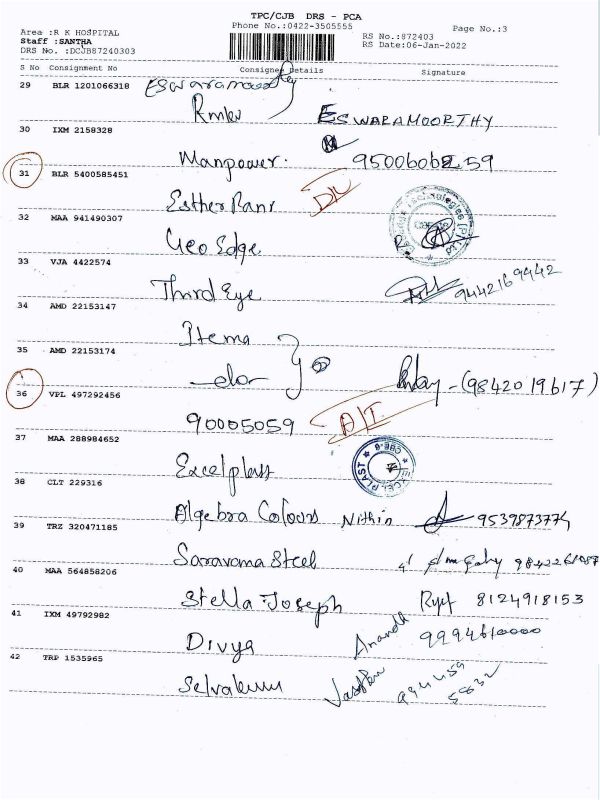 TPC/CJB DRS - PCA
Area :R K HOSPITAL Phone No.:0422-3505555 Page No.:3
Staff :SANTHA RS No.:872403
DRS No. :DCJB87240303 RS Date:06-Jan-2022
S No Consignment No Consignee Details Signature
29 BLR 1201066318 Eswaramoorthy
ESWARAMOORTHY
30 IXM 2158328
Manpower.
31 BLR 5400585451
Esther Rani
32 MAA 941490307
Geo Edge
33 VJA 4422574
Third Eye 9442169442
34 AMD 22153147
Itema
35 AMD 22153174
-do- (9842019617)
36 VPL 497292456
90005059
37 MAA 288984652
Excel plast EXCEL PLAST CBE-6
38 CLT 229316
Algebra Colours Nithin
39 TRZ 320471185
Saravana Steel
40 MAA 564858206
Stella Joseph 8124918153
41 IXM 49792982
Divya Anandh 9994610000
42 TRP 1535965
Selvakumar